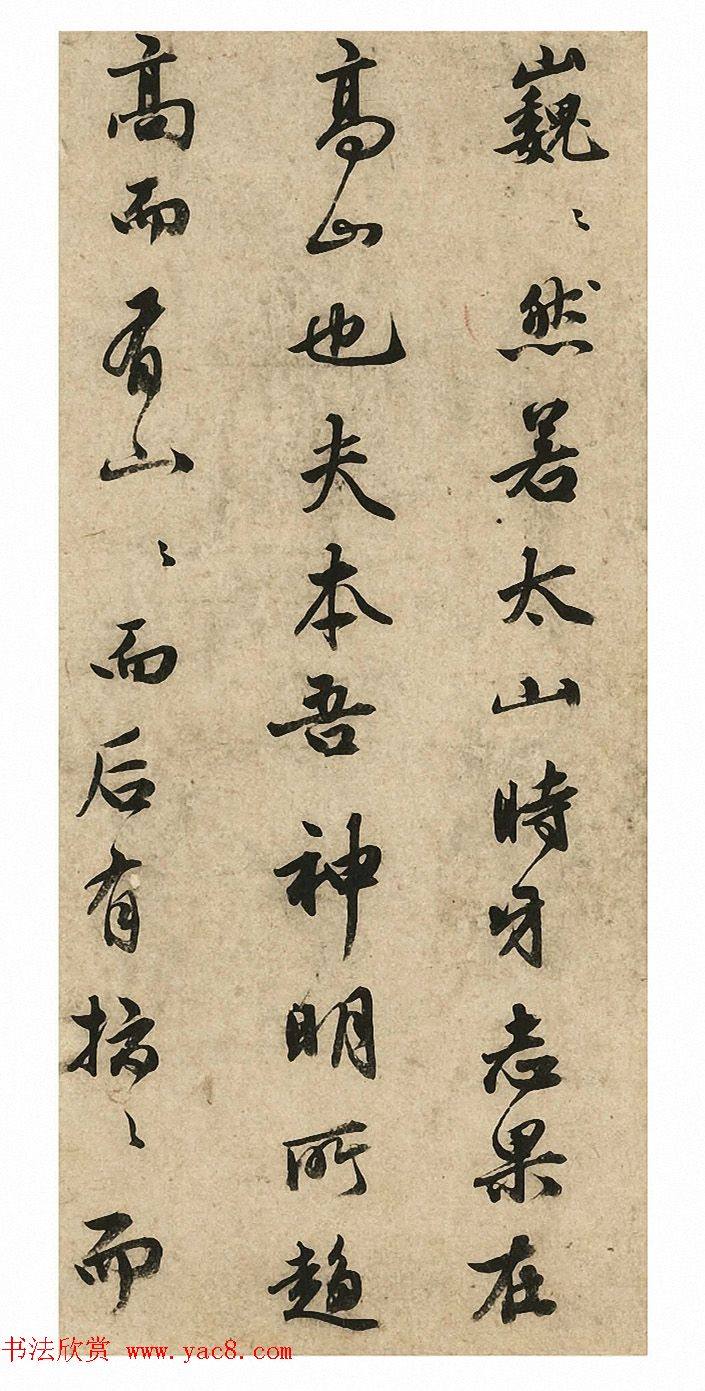 巍〻然若太山時牙志果在
高山也夫本吾神明所趨
高而有山〻而后有搞〻而
书法欣赏 www.yac8.com